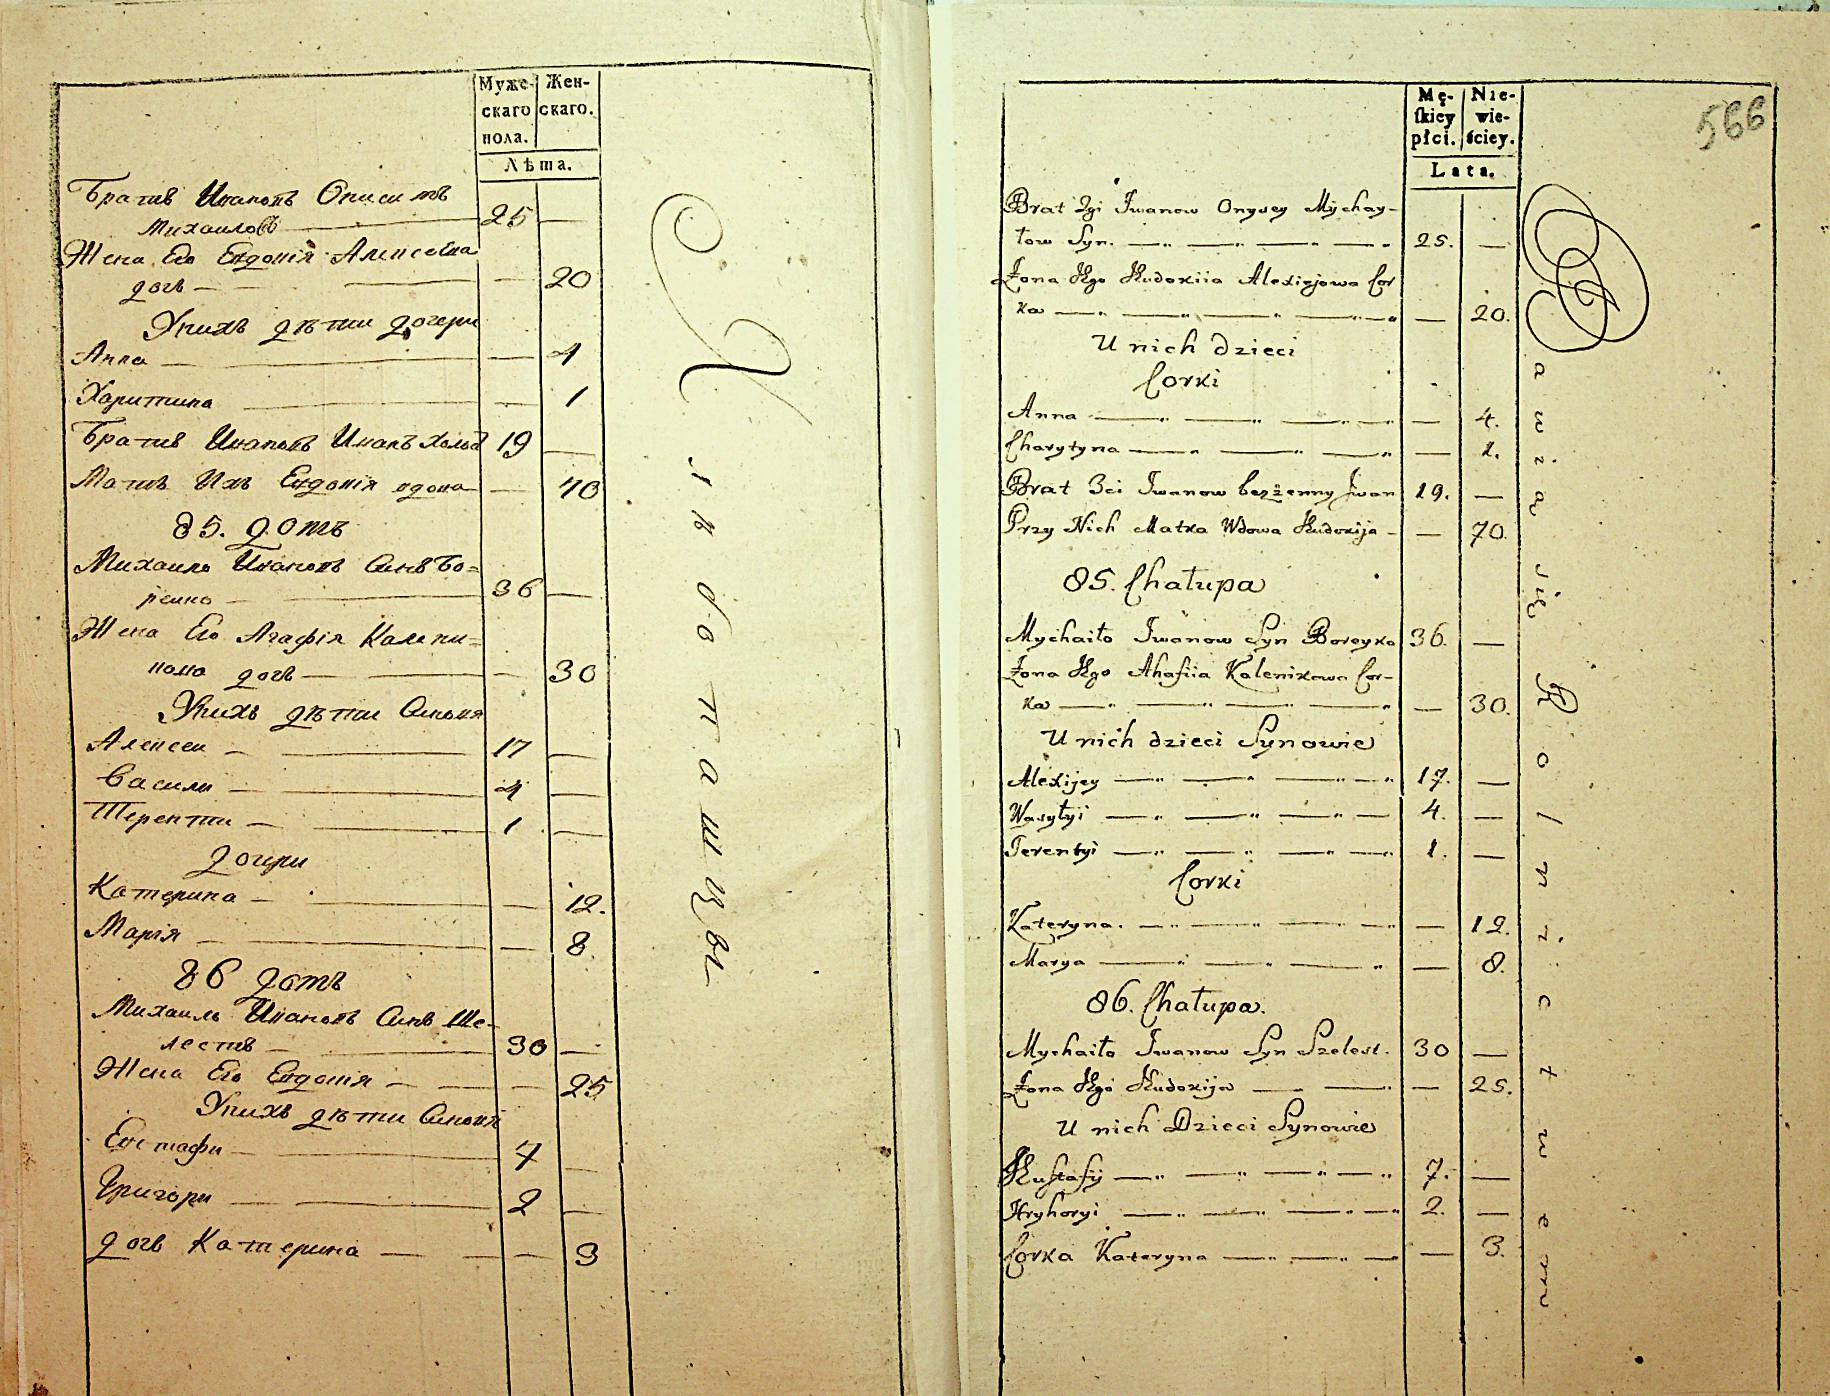 Муже-
скаго
пола.
Жен-
скаго.
Лѣта.
Братъ Ивановъ Онисимъ
Михаиловъ 25 —
Жена Его Евдокія Алексѣева
дочь — 20
Унихъ дѣти дочери
Анна — 4
Харитина — 1
Братъ Ивановъ Иванъ холос 19 —
Мать Ихъ Евдокія вдова — 70
85. домъ
Михаило Ивановъ Синъ Бо=
рейко 36 —
Жена Его Агафія Калени=
кова дочь — 30
Унихъ дѣти Синовя
Алексеи 17 —
Васили 4 —
Теренти 1 —
дочери
Катерина — 12.
Марія — 8
86 домъ
Михаилъ Ивановъ Синъ Ше-
лестъ 30 —
Жена Его Евдокія — 25
Унихъ дѣти Синовя
Евстафи 7 —
Григори 2 —
дочь Катерина — 3
Хлѣбопашцы
566
Mę-
skiey
płci.
Nie-
wie-
sciey.
Lata.
Brat 2gi Iwanow Onysey Mychay-
łow Syn. 25. —
Zona Jego Eudoxiia Alexiejowa Cor
ka — 20.
U nich dzieci
Corki
Anna — 4.
Charytyna — 1.
Brat 3ci Iwanow bezżenny Iwan 19. —
Przy Nich Matka Wdowa Eudoxija — 70.
85. Chałupa
Mychaiło Iwanow Syn Boreyko 36. —
Zona Jego Ahafiia Kalenikowa Cor-
ka — 30.
U nich dzieci Synowie
Alexijey 17. —
Wasylyi 4. —
Terentyi 1. —
Corki
Kateryna. — 12.
Marya — 8.
86. Chałupa.
Mychaiło Iwanow Syn Szelest. 30 —
Zona Jego Eudoxija — 25.
U nich Dzieci Synowie
Eustafij 7. —
Hryhoryi 2. —
Corka Kateryna — 3.
Bawią się Rolnictwem